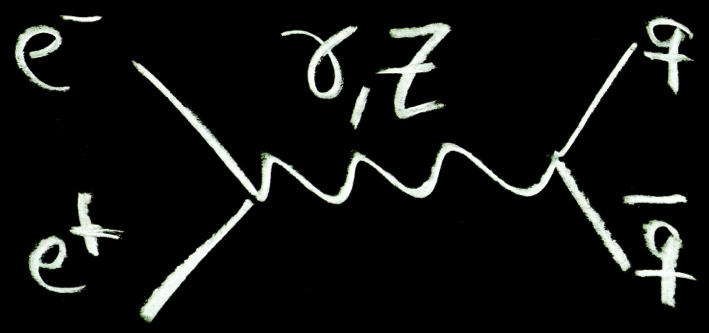 e⁻ γ,Z q
e⁺ q̄